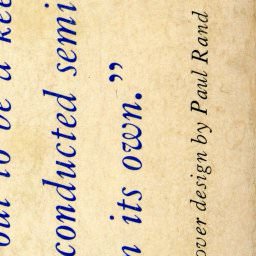 to be a
conducted semi
its own.”
over design by Paul Rand